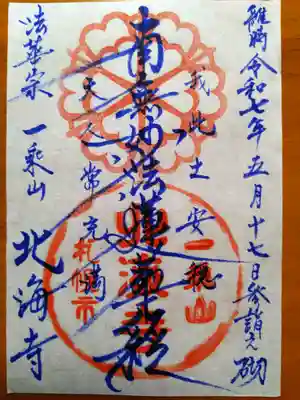 維時令和七年五月十七日参詣之砌
我此土安穏
南無妙法蓮華経
天人常充満
法華宗 一乘山 北海寺
一乘山
札幌市